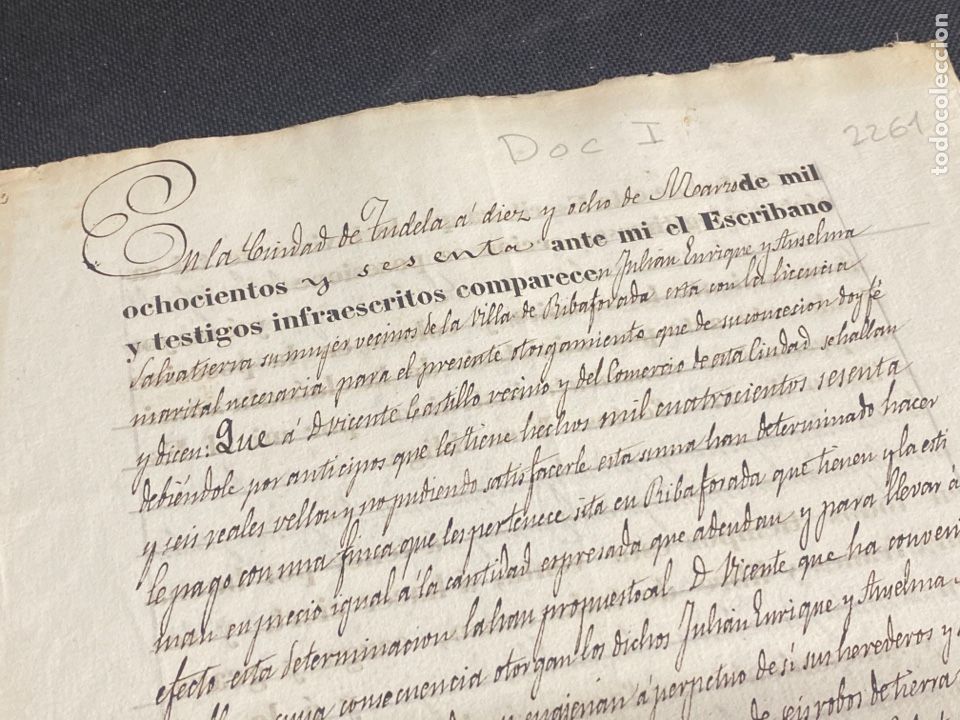 Doc I
2261
todocoleccion
En la Ciudad de Tudela á diez y ocho de Marzo de mil
ochocientos y sesenta ante mi el Escribano
y testigos infraescritos comparecen Julián Enrique y Anselma
Salvatierra su mujer, vecinos de la Villa de Ribaforada esta con la licencia
marital necesaria para el presente otorgamiento que de su concecion doy fé
y dicen: Que á D. Vicente Castillo vecino y del Comercio de esta Ciudad se hallan
debiéndole por anticipos que les tiene hechos mil cuatrocientos sesenta
y seis reales vellon y no pudiendo satisfacerle esta suma han determinado hacer
le pago con una finca que les pertenece sita en Ribaforada que tienen y la esti
man en precio igual á la cantidad expresada que adeudan y para llevar á
efecto esta determinacion la han propuesto al D. Vicente que ha conveni
cuya consecuencia otorgan los dichos Julián Enrique y Anselma
enajenan á perpetuo de sí sus herederos y
de seis robos de tierra